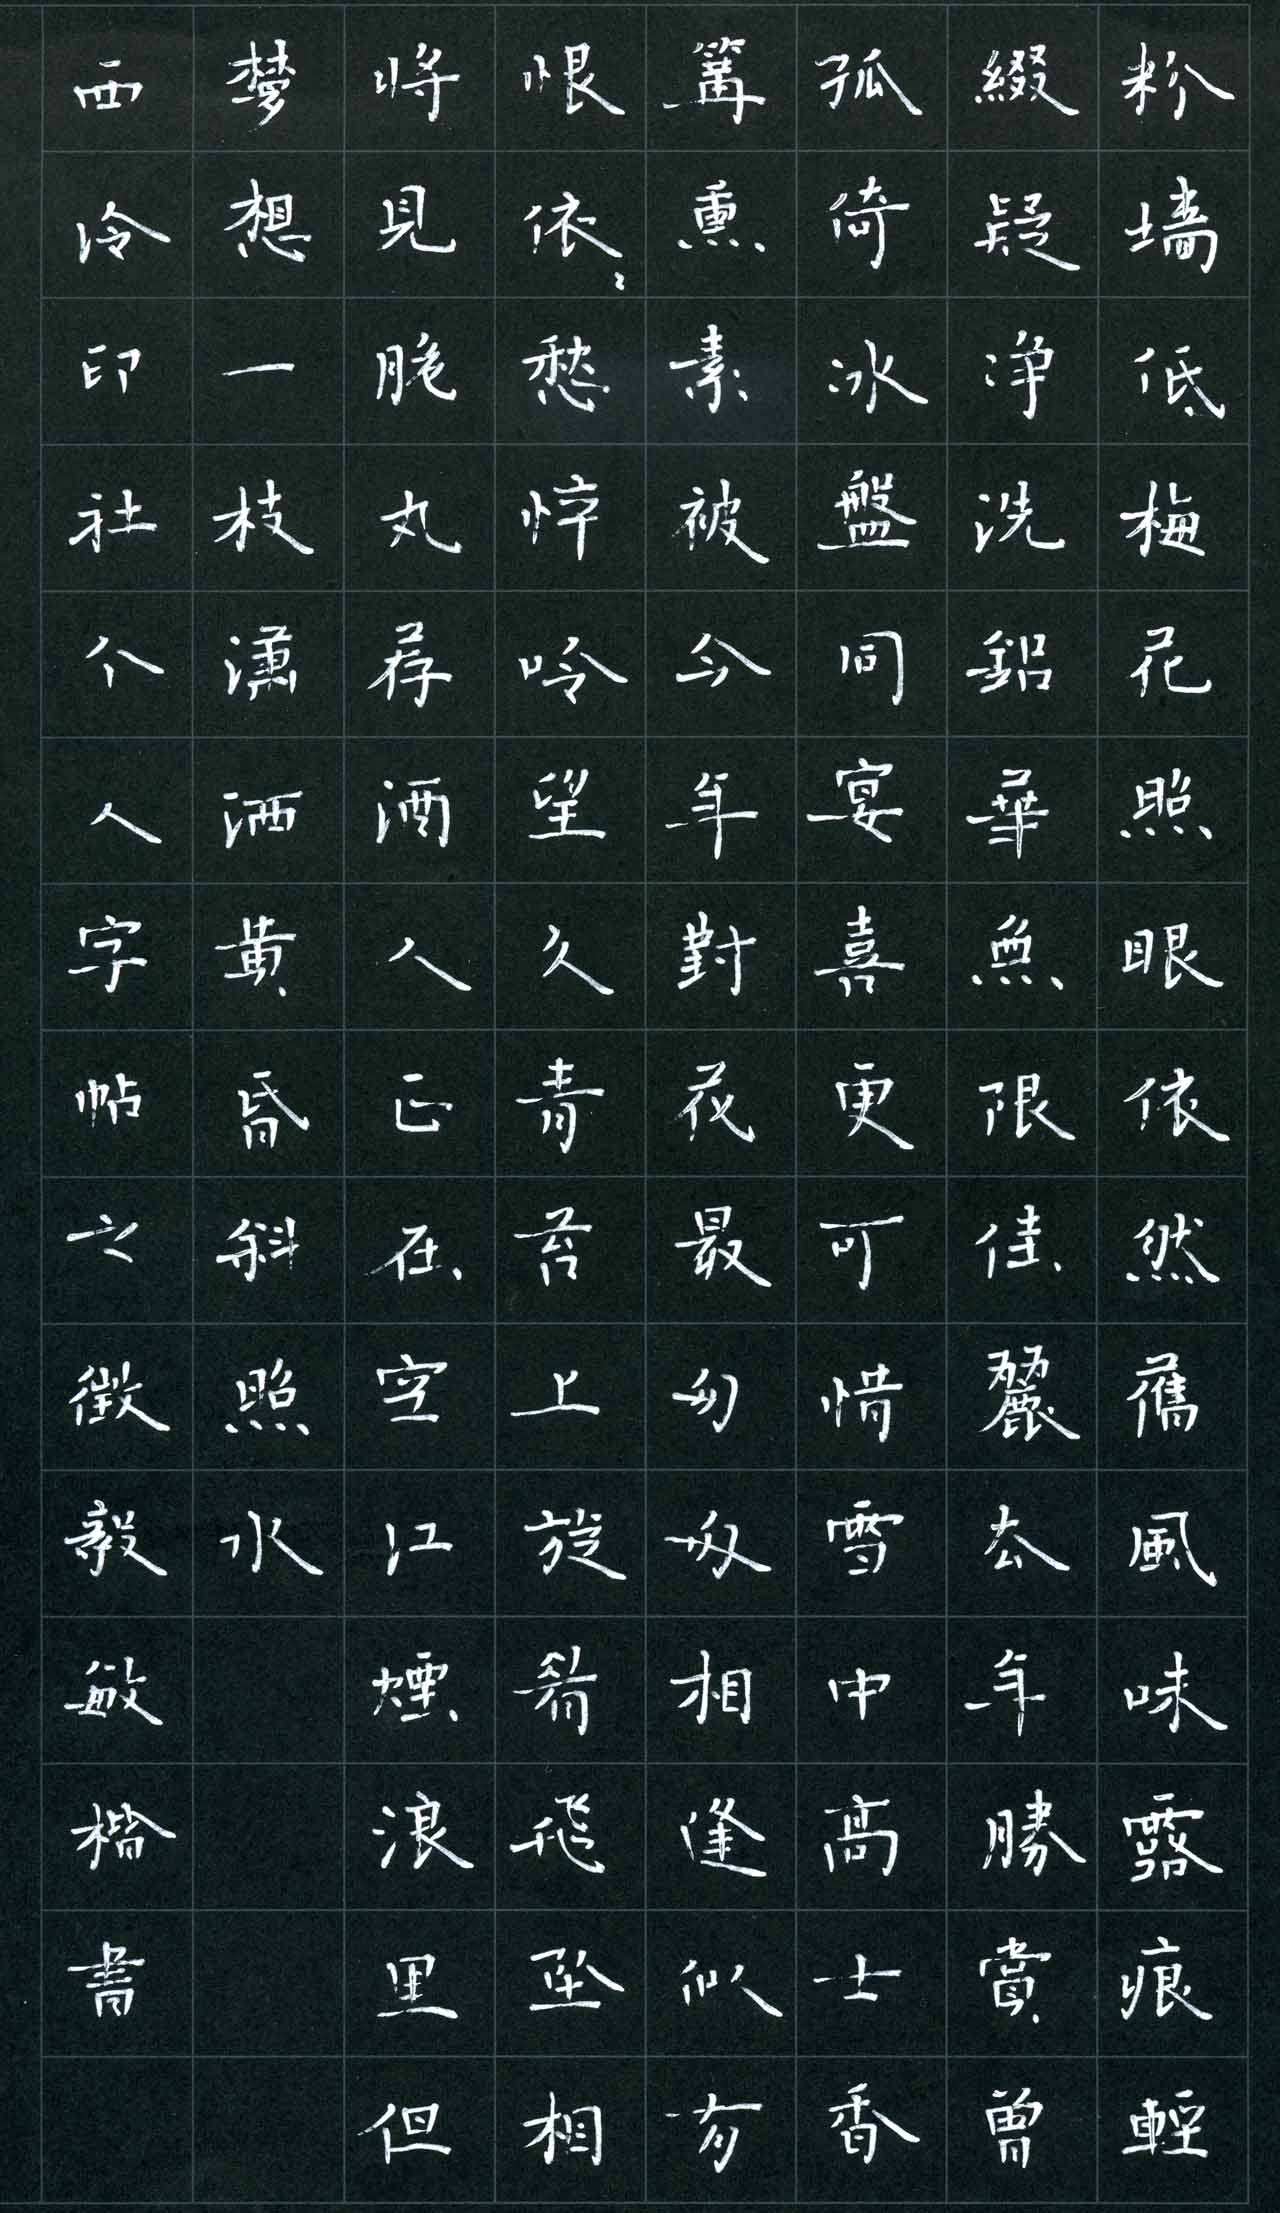 粉墻低梅花照眼依然舊風味露痕輕
綴疑淨洗鉛華無限佳麗去年勝賞曾
孤倚冰盤同宴喜更可惜雪中高士香
篝熏素被今年對花最匆匆相逢似有
恨依〻愁悴吟望久青苔上旋看飛坠相
將見脆丸荐酒人正在空江煙浪里但
夢想一枝瀟洒黃昏斜照水
西泠印社个人字帖之徵毅敏楷書